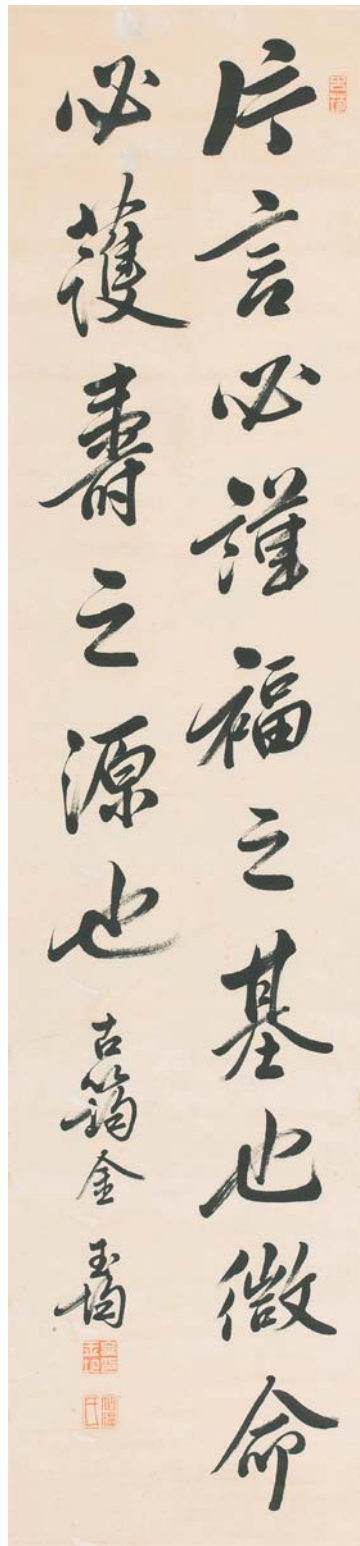 片言必謹福之基也微命
必護壽之源也 古筠金玉均